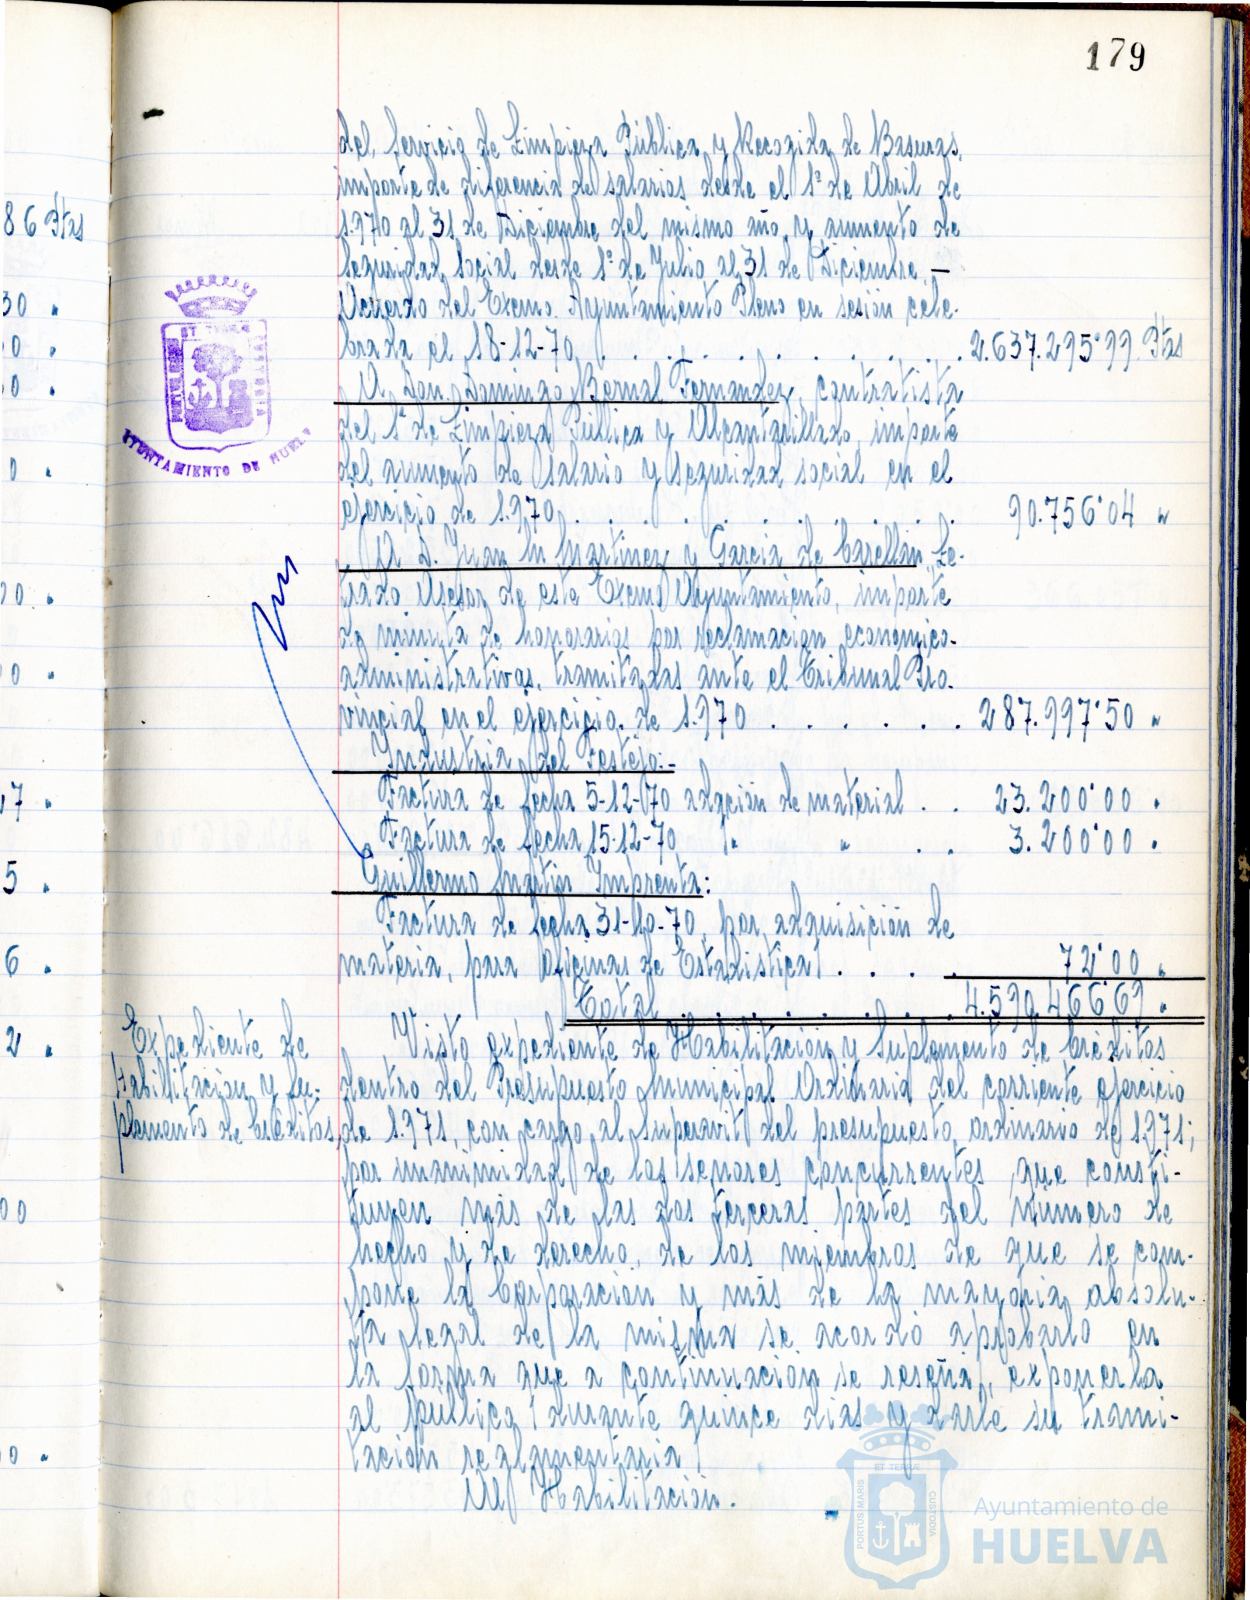 179
del Servicio de Limpieza Pública y Recogida de Basuras,
importe de diferencia de salarios desde el 1º de Abril de
1.970 al 31 de Diciembre del mismo año, y aumento de
Seguridad Social desde 1º de Julio al 31 de Diciembre. —
Acuerdo del Excmo. Ayuntamiento Pleno en sesión cele-
brada el 18-12-70 . . . . . . . . . . 2.637.295'99 Ptas
A Don Domingo Bernal Fernandez, contratista
del Sº de Limpieza Pública y Alcantarillado, importe
del aumento de salario y seguridad social en el
ejercicio de 1.970 . . . . . . . . 90.756'04 "
A D. Juan Mº Martinez y Garcia de Carellán, Le-
trado Asesor de este Excmo Ayuntamiento, importe
de minuta de honorarios por reclamación económico-
administrativas, tramitadas ante el Tribunal Pro-
vincial en el ejercicio de 1.970 . . . . . . 287.997'50 "
Industria del Festejo:-
Factura de fecha 5-12-70 adqción de material . . 23.200'00 "
Factura de fecha 15-12-70 " " . . 3.200'00 "
Guillermo Martin Imprenta:
Factura de fecha 31-10-70, por adquisición de
materia, para Oficinas de Estadistica . . . . 72'00 "
Total . . . . . . . . 4.590.466'69 "
Expediente de
Habilitación y Su-
plemento de créditos
Visto expediente de Habilitación y Suplemento de Créditos
dentro del Presupuesto Municipal Ordinario del corriente ejercicio
de 1.971, con cargo al Superavit del presupuesto ordinario de 1.971;
por unanimidad de los señores concurrentes, que consti-
tuyen más de las dos terceras partes del número de
hecho y de derecho, de los miembros de que se com-
pone la Corporación y más de la mayoria absolu-
ta legal de la misma se acordó aprobarlo en
la forma que a continuación se reseña, exponerla
al público durante quince dias y darle su trami-
tación reglamentaria
A) Habilitación.
86 Ptas
30 "
0 "
0 "
0 "
0 "
47 "
5 "
6 "
2 "
00
0 "
ET TERRAE
AYUNTAMIENTO DE HUELVA
ET TERRAE
PORTUS MARIS
CUSTODIA
Ayuntamiento de
HUELVA